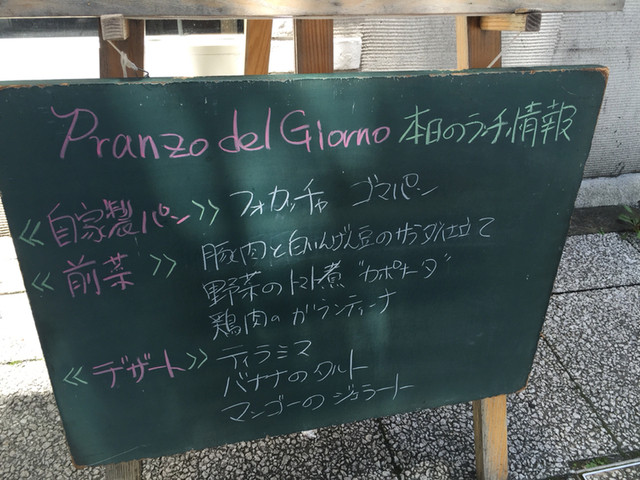 Pranzo del Giorno 本日のランチ情報
≪自家製パン≫ フォカッチャ ゴマパン
≪前菜≫ 豚肉と白いんげん豆のサラダ仕立て
野菜のトマト煮 "カポナータ"
鶏肉のガランティーナ
≪デザート≫ ティラミス
バナナのタルト
マンゴーのジェラート